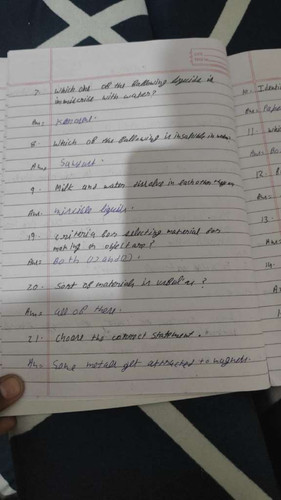 7. Which one of the following liquids is
immiscible with water?
Ans:
8. Which of the following is insoluble in water.
Ans: Sawdust.
9. Milk and water dissolve in each other
Ans: miscible liquids.
19. Criteria for selecting material for
making an object are?
Ans: Both (1) and (2).
20. Sort of materials is useful as?
Ans: all of these.
21. Choose the correct statement.
Ans: Some metals get attracted to magnet.
10. Identi
Ans:
11. Whi
Ans:
12.
Ans:
13.
Ans
14.